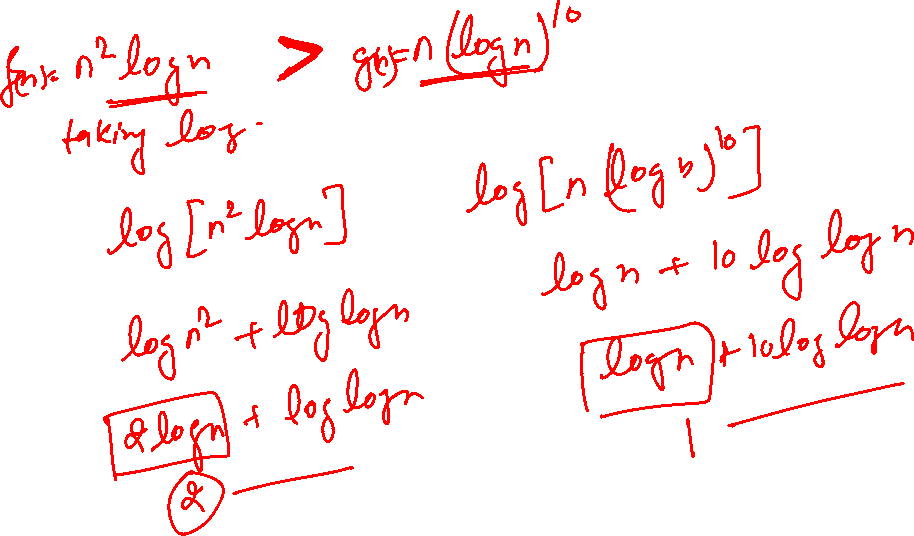 f(n)= n² log n > g(n)= n (log n)¹⁰
taking log.
log [n² log n]
log n² + log log n
2 log n + log log n
2
log [n (log n)¹⁰]
log n + 10 log log n
log n + 10 log log n
1